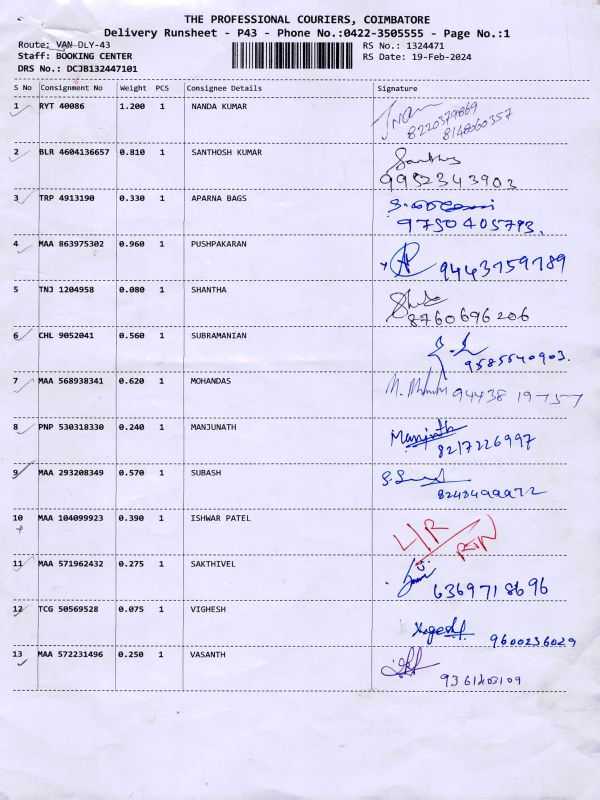 THE PROFESSIONAL COURIERS, COIMBATORE
Delivery Runsheet - P43 - Phone No.:0422-3505555 - Page No.:1
Route: VAN DLY-43 RS No.: 1324471
Staff: BOOKING CENTER RS Date: 19-Feb-2024
DRS No.: DCJB132447101
S No Consignment No Weight PCS Consignee Details Signature
1 RYT 40086 1.200 1 NANDA KUMAR
8148060357
2 BLR 4604136657 0.810 1 SANTHOSH KUMAR
9952343903
3 TRP 4913190 0.330 1 APARNA BAGS
9750405793.
4 MAA 863975302 0.960 1 PUSHPAKARAN
9443759789
5 TNJ 1204958 0.080 1 SHANTHA
8760696206
6 CHL 9052041 0.560 1 SUBRAMANIAN
9585540903.
7 MAA 568938341 0.620 1 MOHANDAS
94438 19757
8 PNP 530318330 0.240 1 MANJUNATH Manjnath
8217226997
9 MAA 293208349 0.570 1 SUBASH
10 MAA 104099923 0.390 1 ISHWAR PATEL
11 MAA 571962432 0.275 1 SAKTHIVEL
6369718696
12 TCG 50569528 0.075 1 VIGHESH
9600236029
13 MAA 572231496 0.250 1 VASANTH